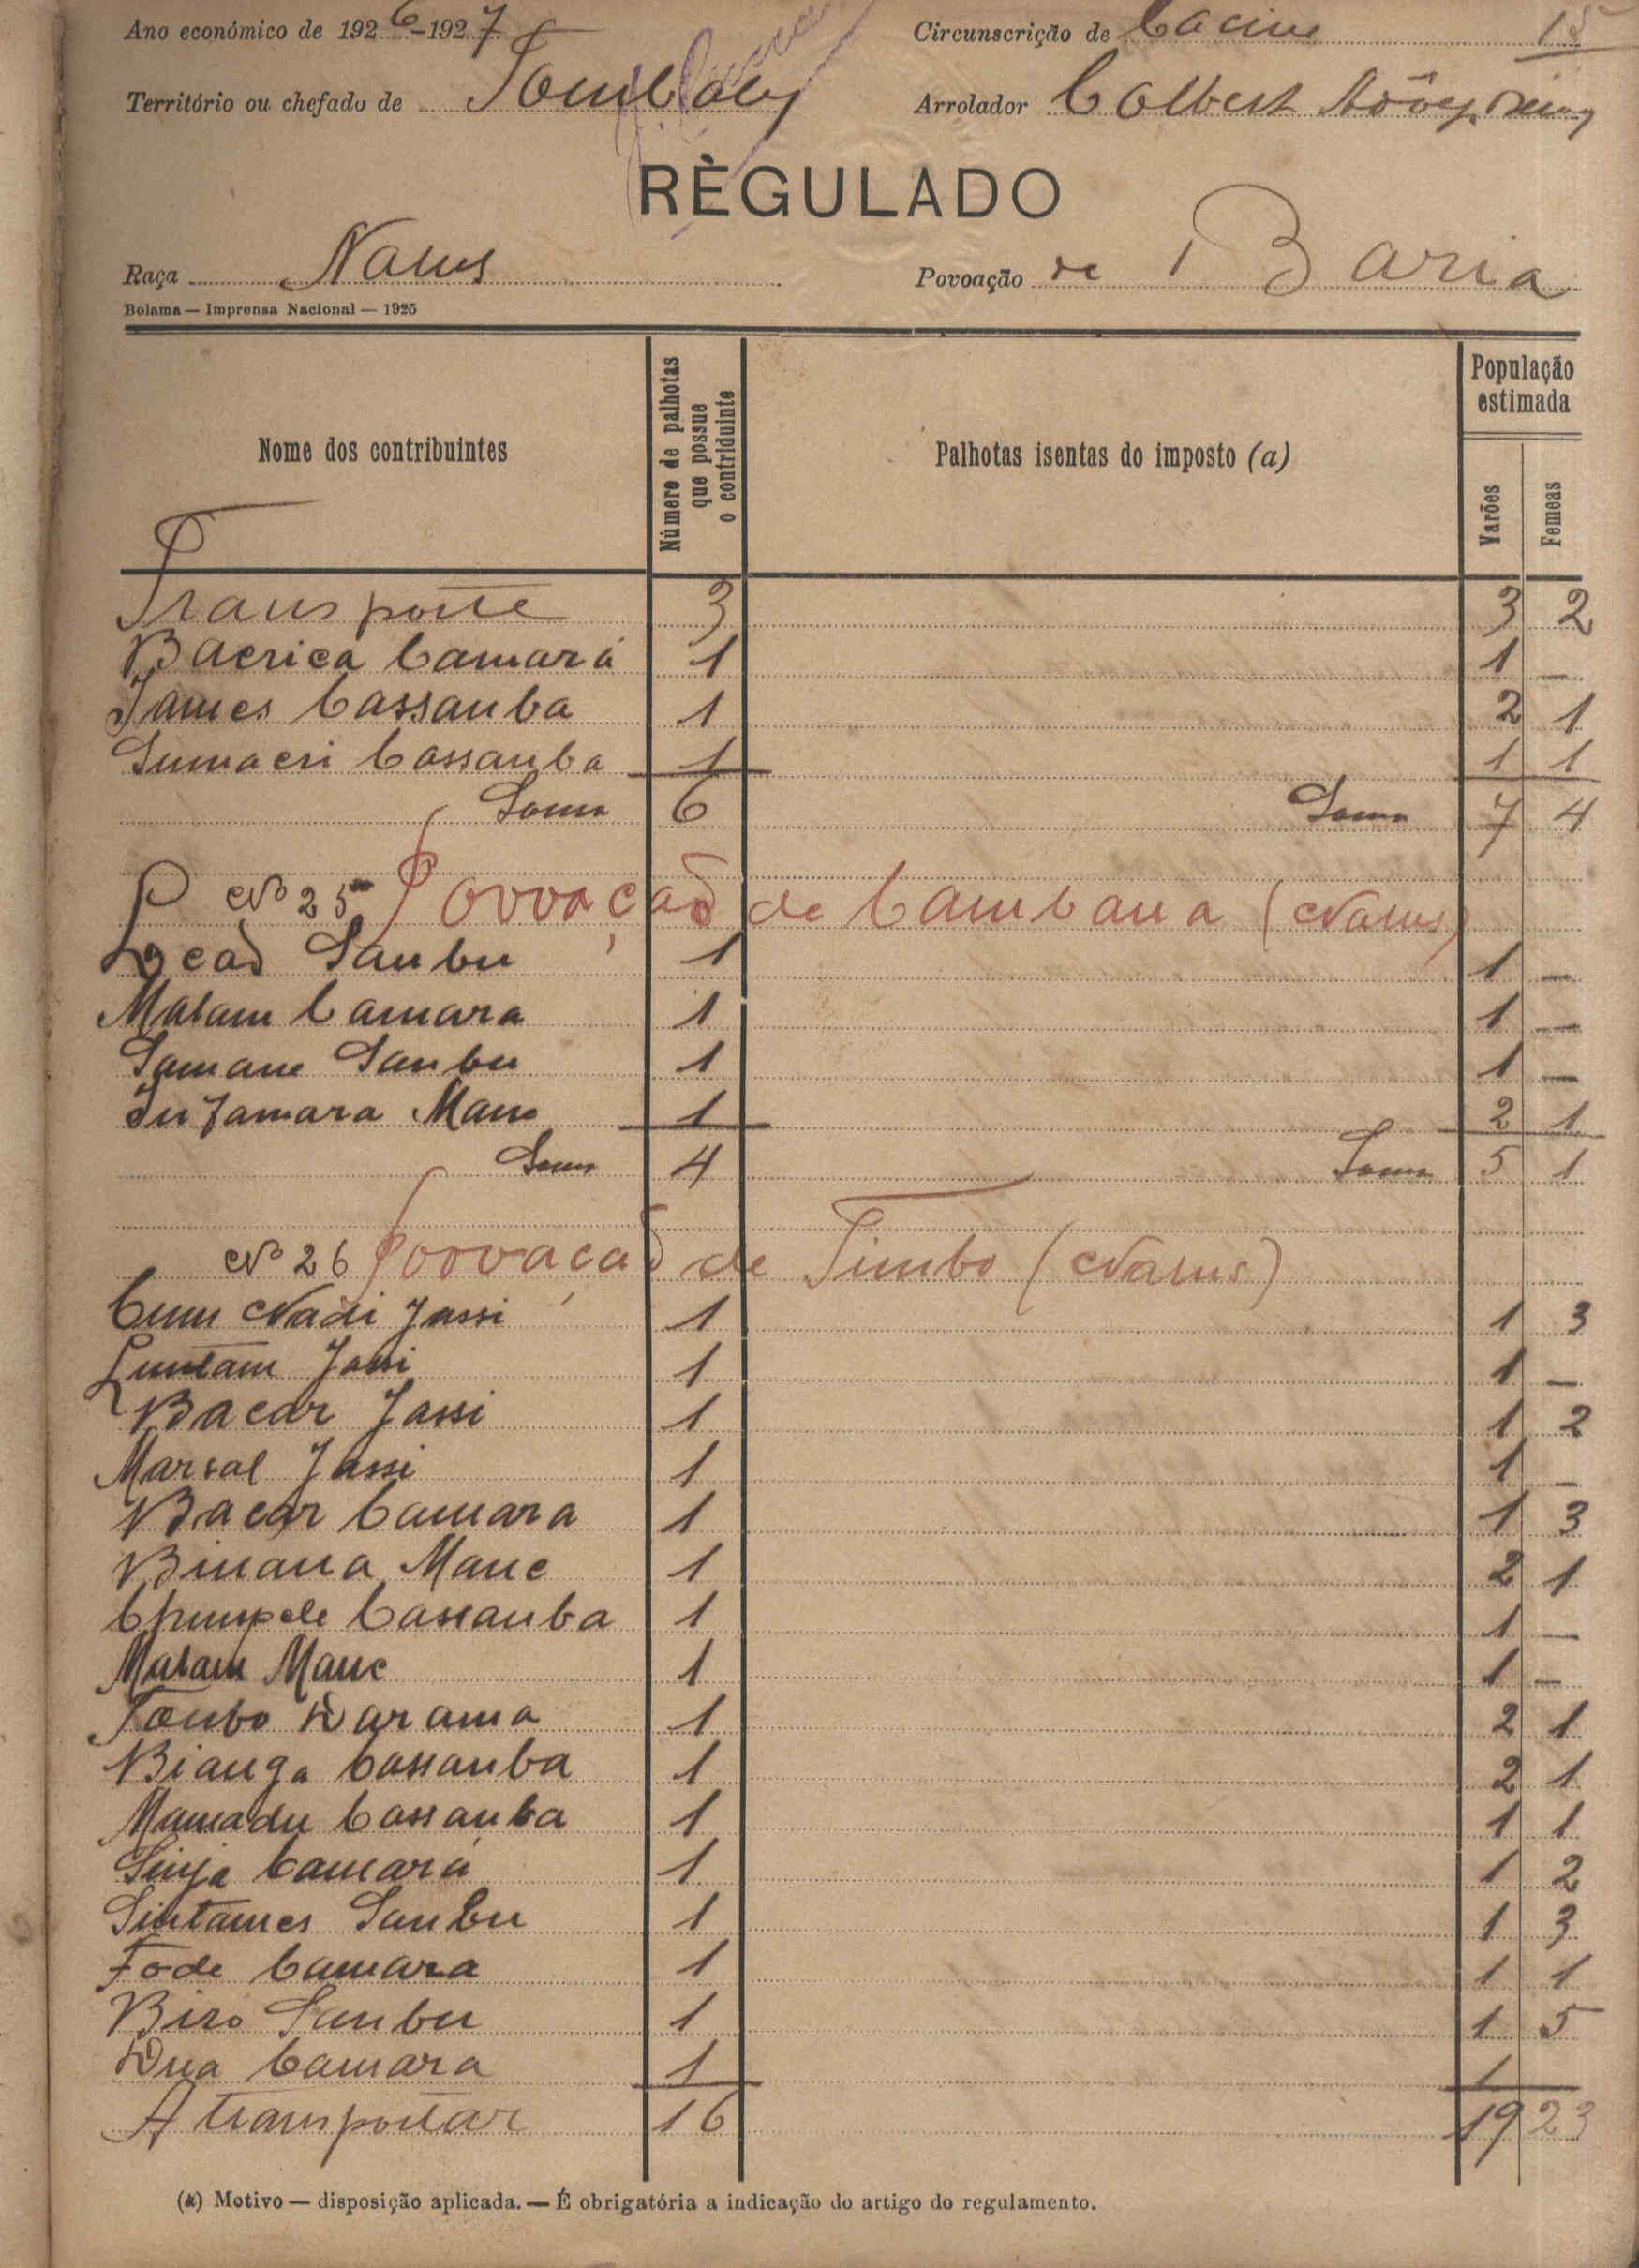 Ano económico de 1926-1927 Circunscrição de Cacine 15
Território ou chefado de Tombaly Arrolador Colbert
RÈGULADO
Raça Nalus Povoação de Baria
Bolama — Imprensa Nacional — 1925
Nome dos contribuintes
Número de palhotas que possue o contriduinte
Palhotas isentas do imposto (a)
População estimada
Varões
Femeas
Transporte 3 3 2
Bacrica Camará 1 1 —
James Cassamba 1 2 1
Sumaeri Cassamba 1 1 1
Soma 6 Soma 7 4
P Nº 25 Povoação de Cambana (Nalus)
Sambu 1 1 —
Malam Camara 1 1 —
Samane Sambu 1 1 —
Mane 1 2 1
Soma 4 Soma 5 1
Nº 26 Povoação de Timbo (Nalus)
Nadi Jassi 1 1 3
Jassi 1 1 —
Bacar Jassi 1 1 2
Marsal Jassi 1 1 —
Bacar Camara 1 1 3
Binana Mane 1 2 1
Cassamba 1 1 —
Malam Mane 1 1 —
Tombo Darama 1 2 1
Bianga Cassamba 1 2 1
Mamadu Cassamba 1 1 1
Sinja Camará 1 1 2
Sintames Sambu 1 1 3
Fode Camara 1 1 1
Biro Sambu 1 1 5
Dua Camara 1 1
A transportar 16 19 23
(a) Motivo — disposição aplicada. — É obrigatória a indicação do artigo do regulamento.